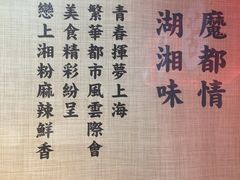 魔都情
湖湘味
青春揮夢上海
繁華都市風雲際會
美食精彩紛呈
戀上湘粉麻辣鮮香